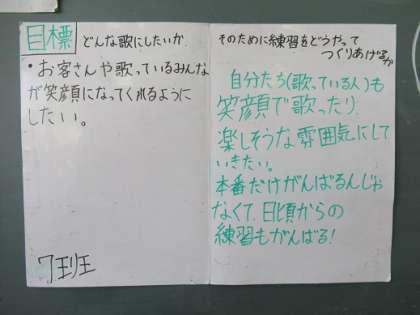 目標 どんな歌にしたいか
・お客さんや歌っているみんな
が笑顔になってくれるように
したい。
7班
そのために練習をどうやって
つくりあげるか
自分たち(歌っている人)も
笑顔で歌ったり
楽しそうな雰囲気にして
いきたい。
本番だけがんばるんじゃ
なくて、日頃からの
練習もがんばる!